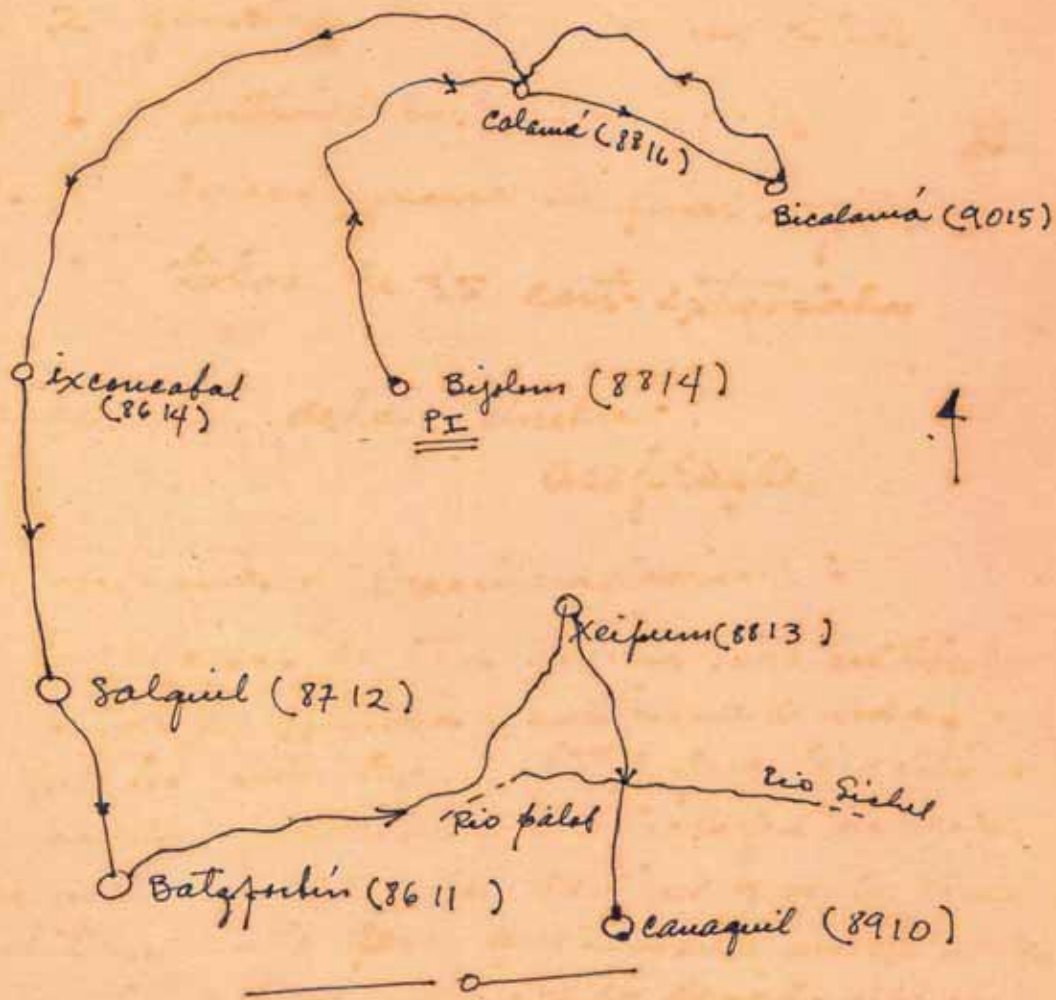 Calamá (8816)
Bicalamá (9015)
ixconcabal
(8614)
Bijolom (8814)
PI
Xeipum (8813)
Salquil (8712)
Rio Sichel
Rio
Batzporbín (8611)
Canaquil (8910)